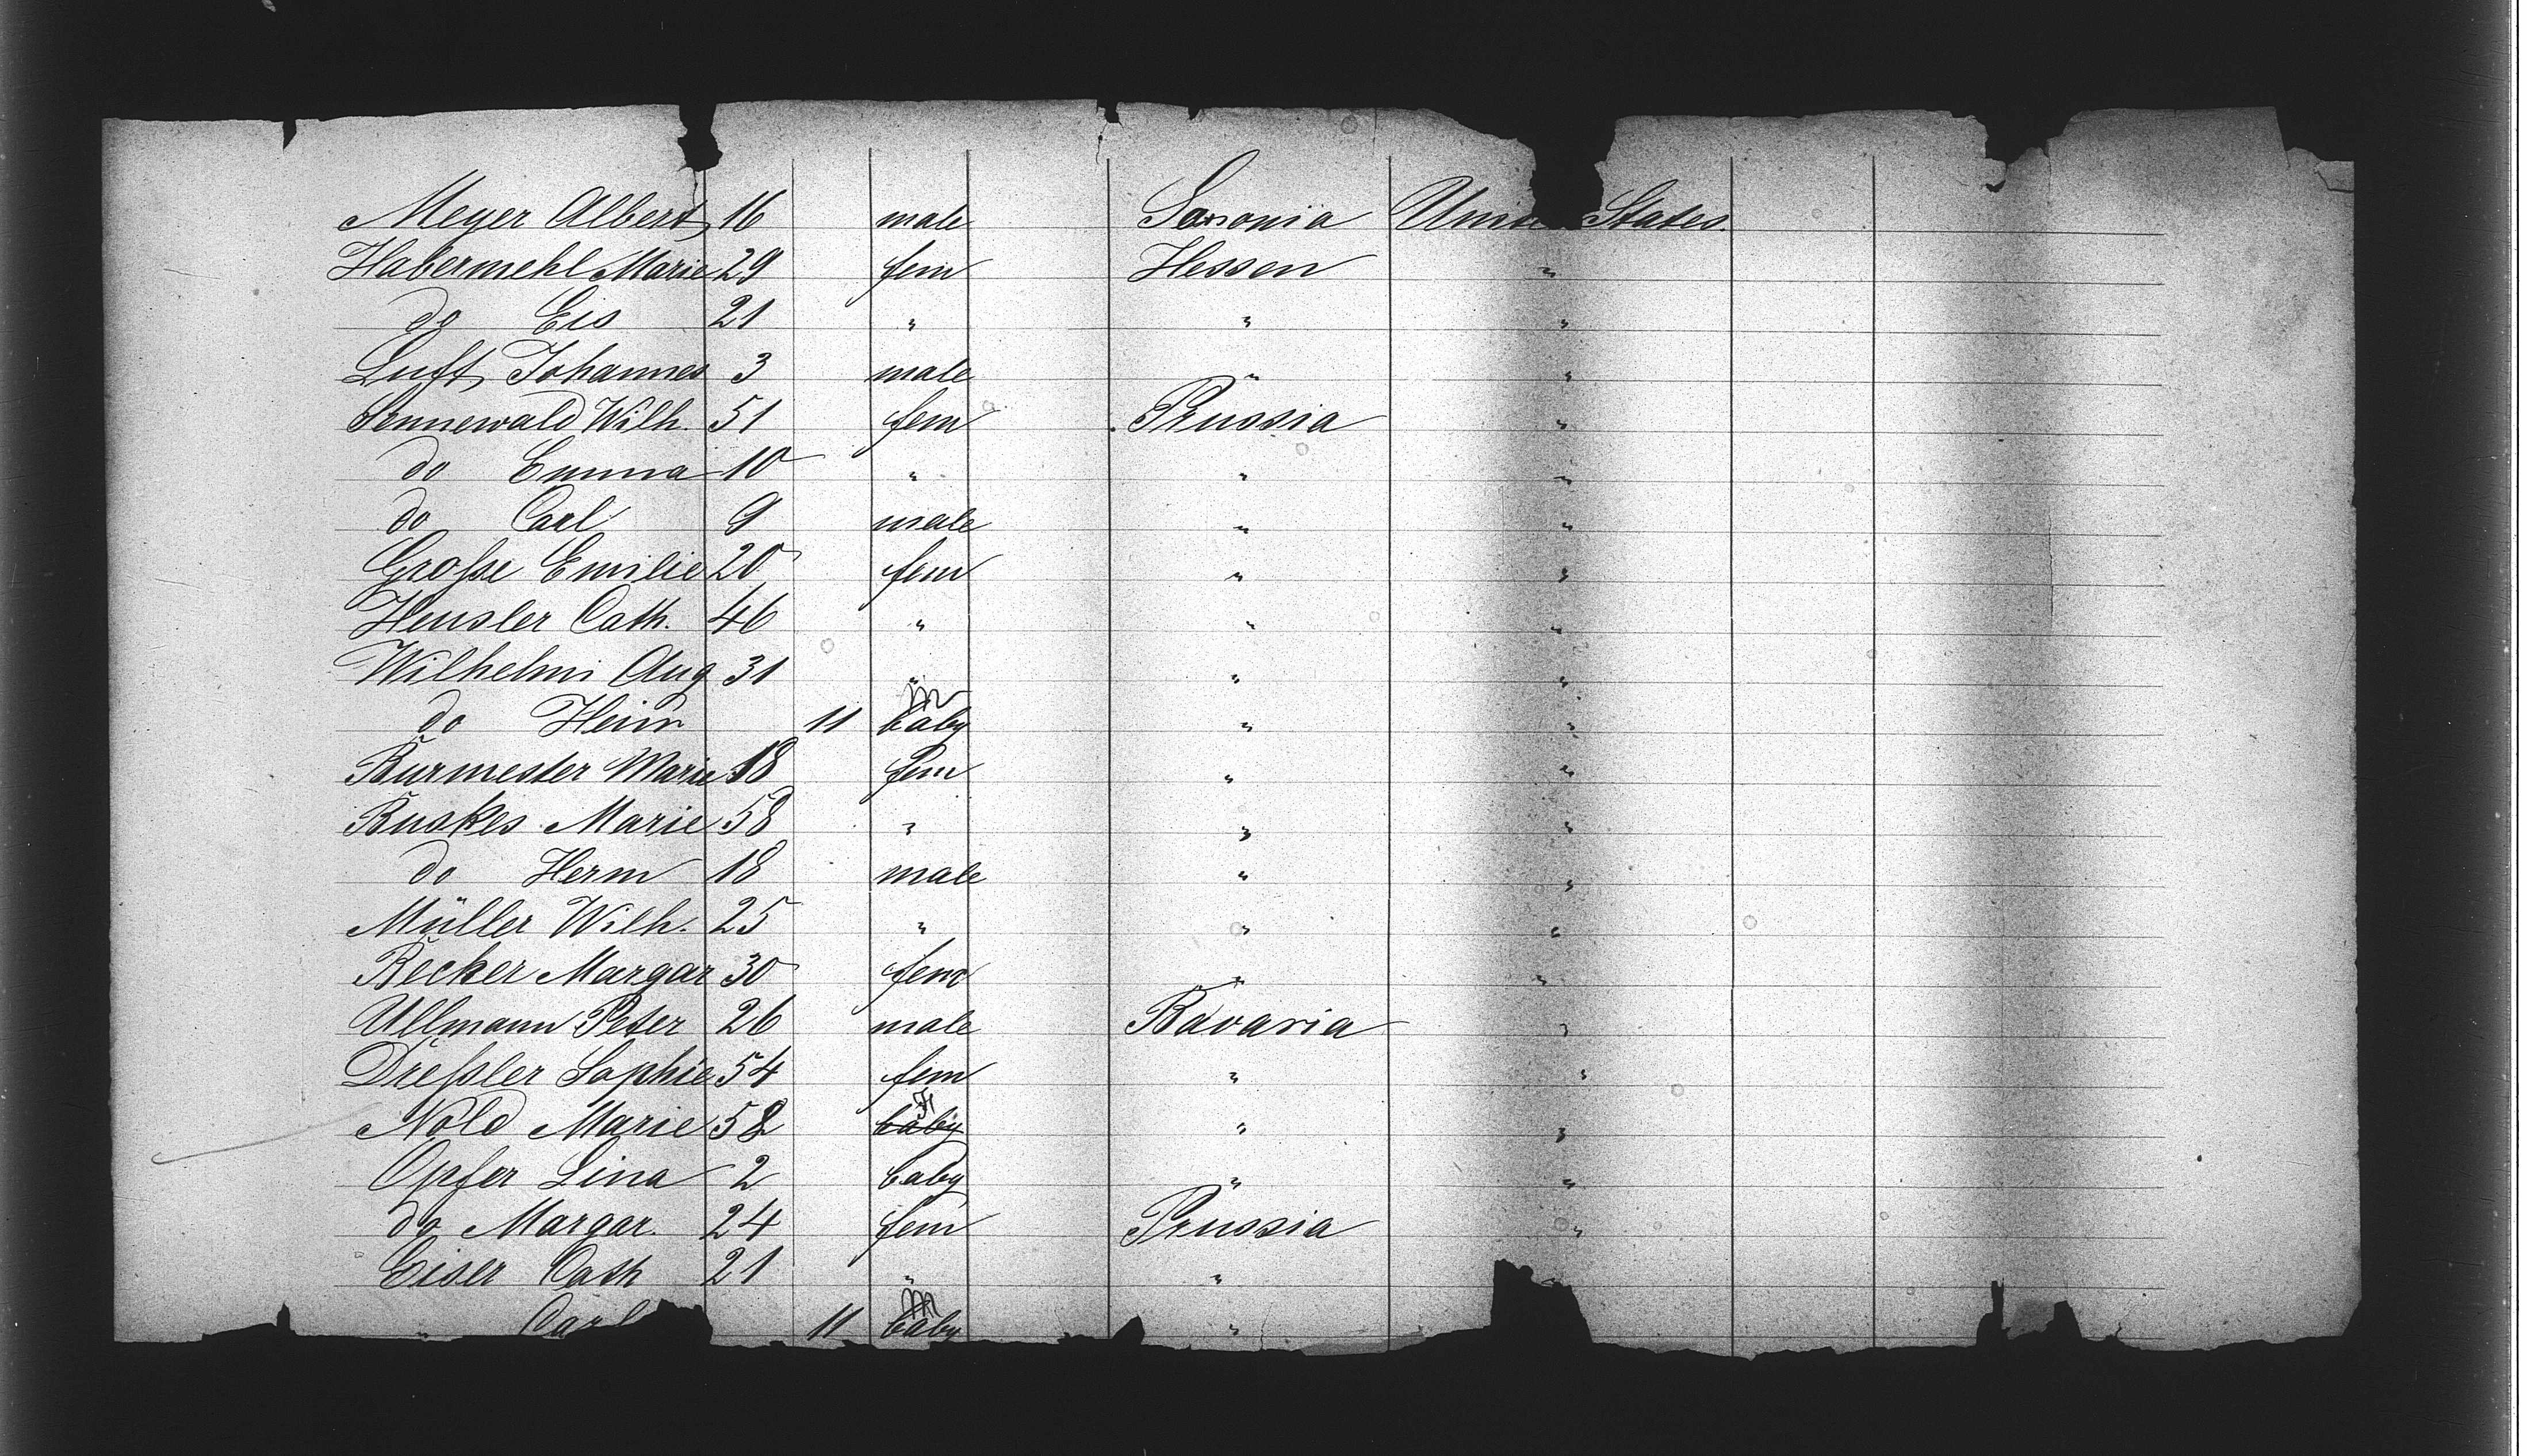 Meyer Albert 16 male Saxonia United States.
Habermehl Marie 29 fem Hessen "
do Eis 21 " " "
Luft Johannes 3 male " "
Sennewald Wilh. 51 fem Prussia "
do Emma 10 " " "
do Carl 9 male " "
Große Emilie 20 fem " "
Heusler Cath. 46 " " "
Wilhelmi Aug 31 " " "
do Heinr 11 baby m " "
Burmester Marie 18 fem " "
Buskes Marie 58 " " "
do Herm 18 male " "
Müller Wilh. 25 " " "
Becker Margar 30 fem " "
Ullmann Peter 26 male Bavaria "
Dreßler Sophie 54 fem " "
Nold Marie 58 baby F " "
Opfer Lina 2 baby " "
do Margar. 24 fem Prussia "
Eiser Cath 21 " "
" Carl 11 baby m "